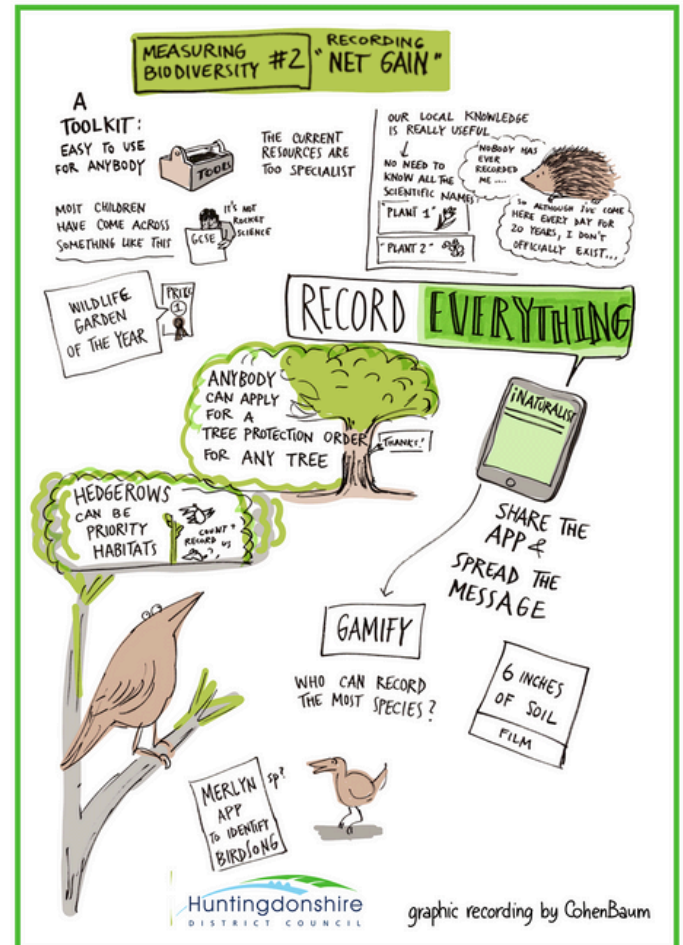 MEASURING
BIODIVERSITY #2
RECORDING
"NET GAIN"
A
TOOLKIT:
EASY TO USE
FOR ANYBODY
TOOLS
THE CURRENT
RESOURCES ARE
TOO SPECIALIST
MOST CHILDREN
HAVE COME ACROSS
SOMETHING LIKE THIS
GCSE
IT'S NOT
ROCKET
SCIENCE
OUR LOCAL KNOWLEDGE
IS REALLY USEFUL
NO NEED TO
KNOW ALL THE
SCIENTIFIC NAMES
"PLANT 1"
"PLANT 2"
NOBODY HAS
EVER
RECORDED
ME....
SO ALTHOUGH I'VE COME
HERE EVERY DAY FOR
20 YEARS, I DON'T
OFFICIALLY EXIST...
WILDLIFE
GARDEN
OF THE YEAR
PRIZE
1
RECORD EVERYTHING
iNATURALIST
ANYBODY
CAN APPLY
FOR A
TREE PROTECTION ORDER
FOR ANY TREE
THANKS!
HEDGEROWS
CAN BE
PRIORITY
HABITATS
COUNT?
RECORD US
SHARE THE
APP &
SPREAD THE
MESSAGE
GAMIFY
WHO CAN RECORD
THE MOST SPECIES?
6 INCHES
OF SOIL
FILM
MERLYN sp?
APP
TO IDENTIFY
BIRDSONG
Huntingdonshire
DISTRICT COUNCIL
graphic recording by CohenBaum